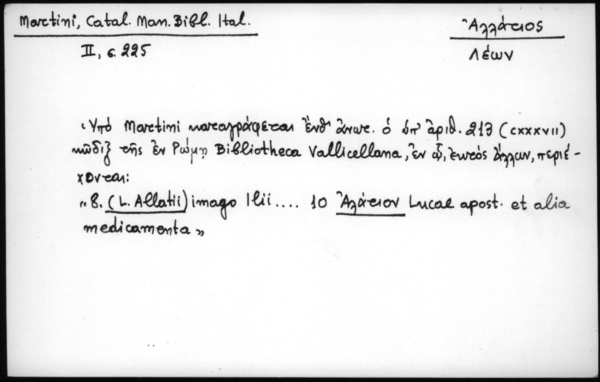 Martini, Catal. Man. Bibl. Ital.
II, σ. 225
Ἀλλάτιος
Λέων
Ὑπὸ Martini καταγράφεται ἔνθ' ἀνωτ. ὁ ὑπ' ἀριθ. 213 (CXXXVII)
κῶδιξ τῆς ἐν Ρώμῃ Bibliotheca Vallicellana, ἐν ᾧ, ἐκτὸς ἄλλων, περιέ-
χονται:
"8. (L. Allatii) imago Ilii.... 10 Ἀλάτιον Lucae apost. et alia
medicamenta"